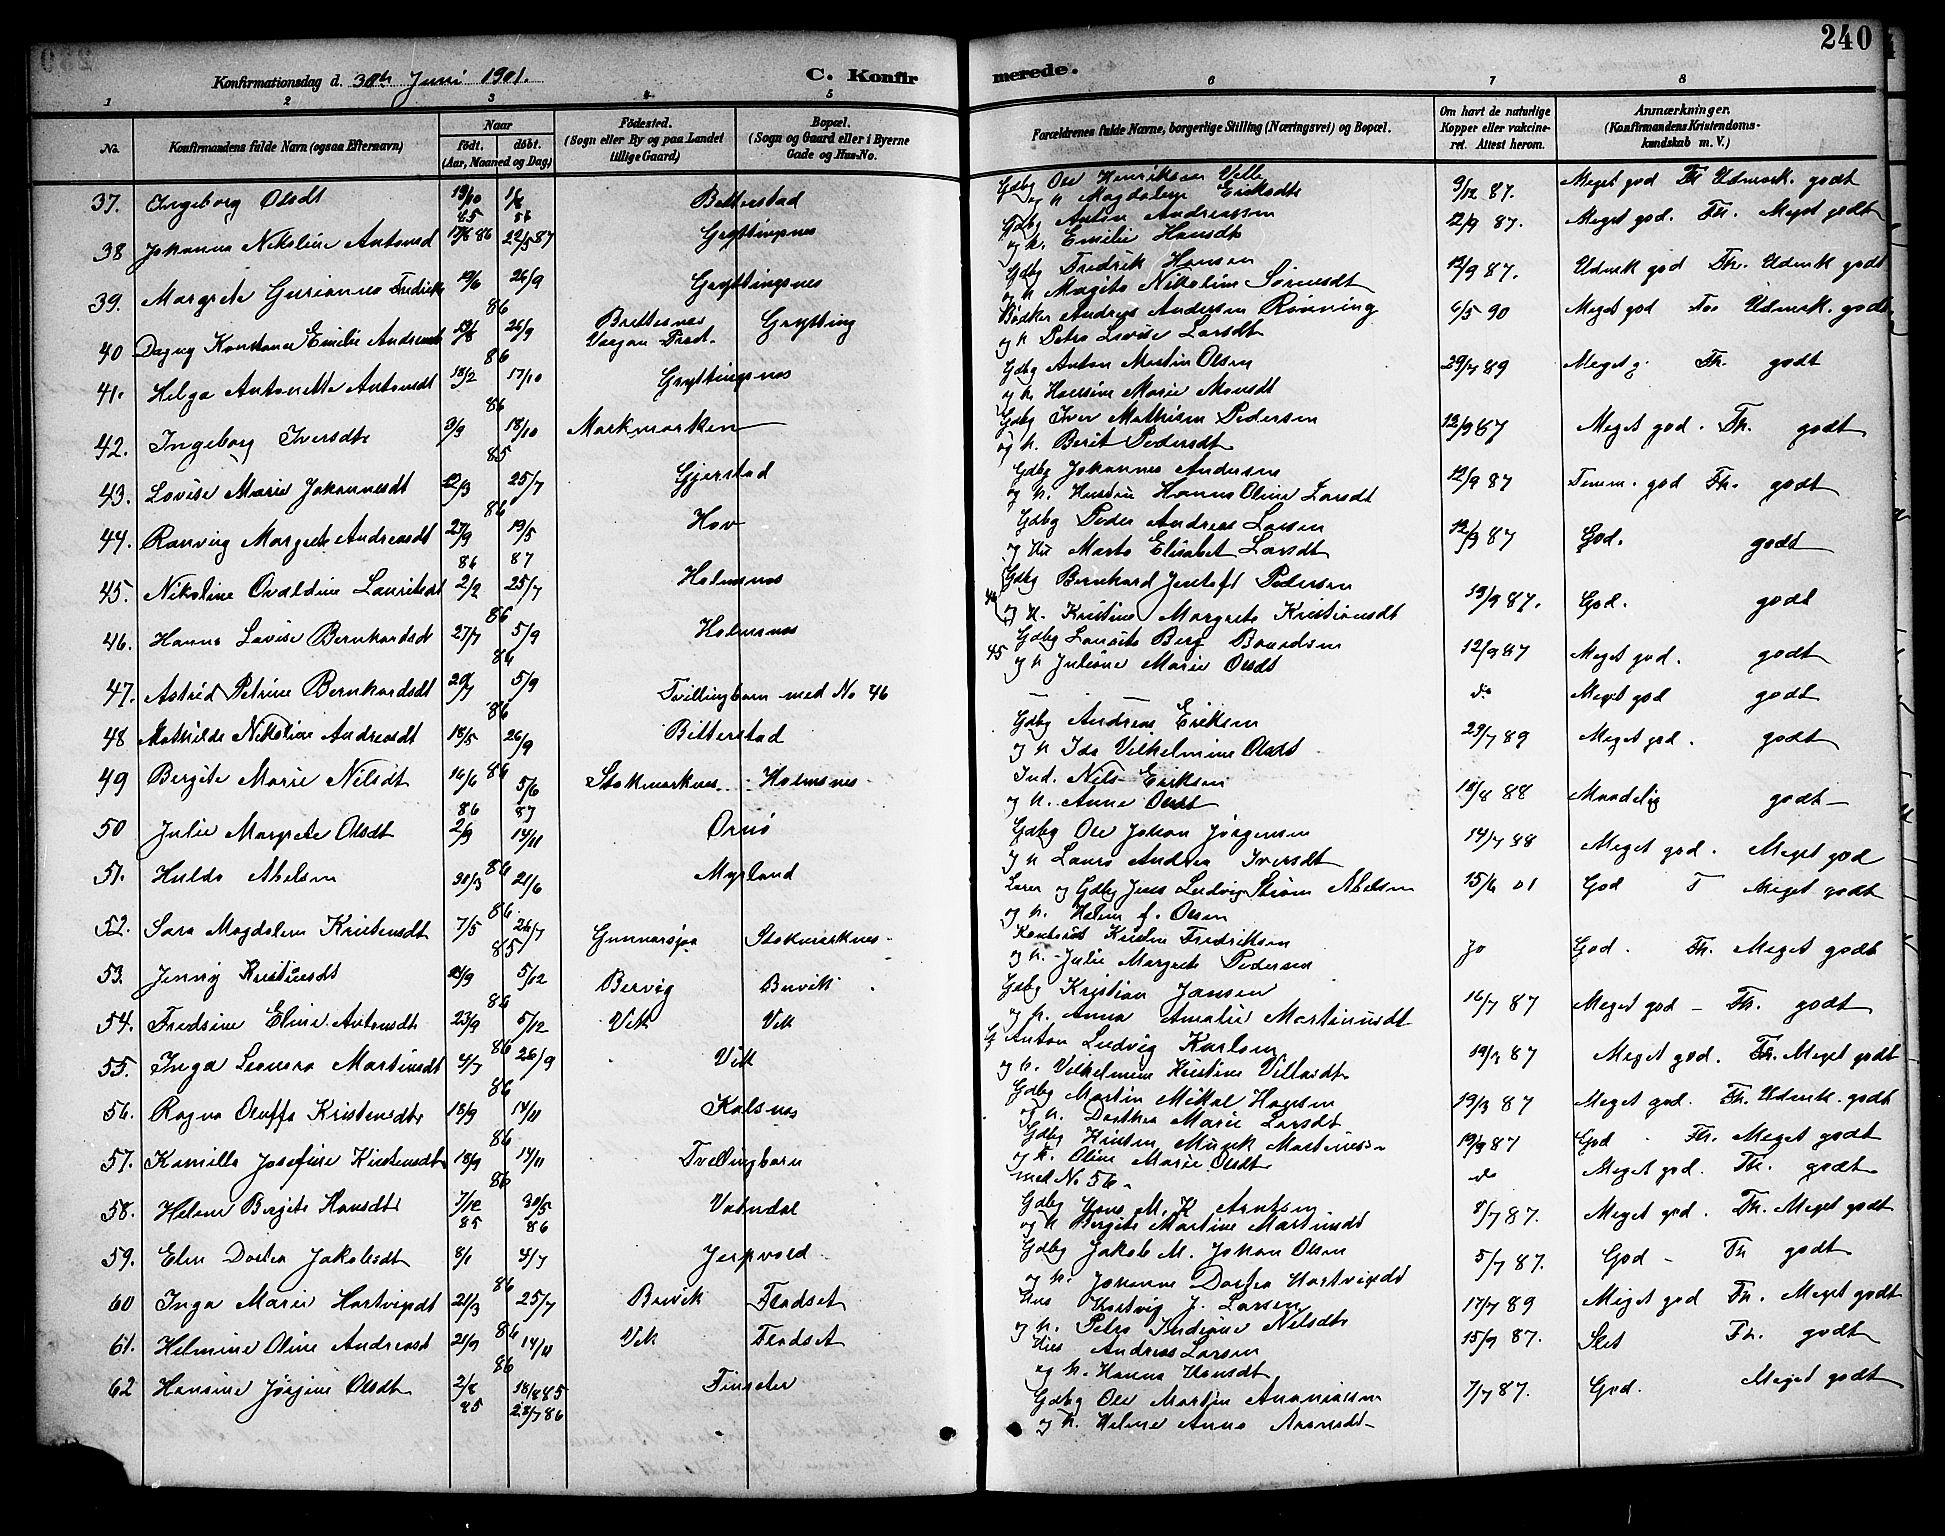 240
Konfirmationsdag d. 30te Juni 1901.
C. Konfirmerede.
1 2 3 4 5 6 7 8
No. Konfirmandens fulde Navn (ogsaa Efternavn) Naar født. døbt. (Aar, Maaned og Dag) Födested. (Sogn eller By og paa Landet tillige Gaard) Bopæl. (Sogn og Gaard eller i Byerne Gade og Hus-No. Forældrenes fulde Navne, borgerlige Stilling (Næringsvei) og Bopæl. Om havt de naturlige Kopper eller vakcineret. Attest herom. Anmærkninger. (Konfirmandens Kristendomskundskab m. V.)
37. Ingeborg Olsdt 19/10 85 1/8 86 Bitterstad Gdbg Ole Henriksen og h. Magdalena Eriksdt 9/12 87. Meget god Th Udmerk. godt
38 Johanna Nikoline Antonsd 17/8 86 22/5 87 Gryttingsnes Gdbg Anton Andreassen og h. Emilie Hansdt 12/9 87. Meget god. Th. Meget godt
39. Margrete Gurianna Fredrik 19/6 26/9 86 Gryttingsnes Gdbg Fredrik Hansen og h Magita Nikoline Sörensdt 12/9 87. Udmrk god Th. Udmrk godt
40 Dagny Konstance Emilie Andreasdt 19/8 26/9 86 Brettesnes Vaagan Præst. Grytting Bødker Andreas Andersen Rønning og h Petra Lovise Larsdt 6/5 90 Meget god Udmrk. godt
41. Helga Antonette Antonsdt 18/2 17/10 86 Gryttingsnes Gdbg Anton Martin Olsen og h. Hansine Marie Monsdt 29/7 89 Meget g. Th. godt
42. Ingeborg Iversdt 9/9 18/10 85 Markmarken Gdbg Iver Mathisen Pedersen og h. Berit Pedersdt 12/9 87 Meget god. Th. godt
43. Lovise Marie Johannesdt 12/3 25/7 86 Gjerstad Gdbg Johannes Andersen og h. Hustru Hanna Oline Larsdt 12/9 87 Temm. god Th. godt
44. Ranveig Margrete Andreasdt 27/9 86 19/5 87 Hov Gdbg Peder Andreas Larsen og Marta Elisabet Larsdt 87 God. godt
45. Nikoline Ovaldine Lauritsdt 2/2 25/7 86 Holmsnes 46 Gdbg Bernhard Jentoft Pedersen og h. Kristine Margrete Kristiansdt 19/9 87. God. godt
46. Hanna Lovise Bernhardsdt 27/7 5/9 86 Holmsnes 45 Gdbg Laurits Berg Baardsen og h Juliane Marie Olsdt 12/9 87 Meget god. godt
47. Astrid Petrine Bernhardsdt 5/9 86 Tvillingbarn med No 46 do Meget god godt
48 Mathilde Nikoline Andreasdt 18/5 26/9 86 Bitterstad Gdbg Andreas Eriksen og h Ida Vilhelmine Olsdt 29/7 89 Meget god. godt
49 Bergite Marie Nilsdt 16/6 86 5/6 87 Stokmarknes Holmsnes Ind. Nils Eriksen og h. Anne Olsdt 88 Maadelig godt
50 Julie Margrete Olsdt 2/9 14/11 86 Ornö Gdbg Ole Johan Jørgensen og h Laura Andrea Iversdt 14/7 88 Meget god. Meget god
51. Hulda Abelsen 30/3 21/6 86. Myrland Lærer og Gdbg Jens Ludvig Strøm Abelsen og h. Helene f. Olsen 15/6 01 God T Meget godt
52. Sara Magdalena Kristensdt 7/5 26/7 85 Gunnarsjaa Stokmarknes Kristen Fredriksen og h. Julie Margrete Pedersen Jo God. Th. Meget godt
53. Jenny Kristiansdt 5/12 86 Bervig Bervik Gdbg Kristian Jansen og h. Anna Amalie Martinusdt 16/7 87 Meget god Th. godt
54. Fredrine Eline Antonsdt 23/9 5/12 86 Vik Vik G Anton Ludvig Karlsen og h. Vilhelmine Kristine Villasdt 87 Meget god. Th. Meget godt
55. Inga Leonora Martinsdt 4/7 26/9 86 Vik Gdbg Martin Mikal Hansen og h. Dorthea Marie Larsdt 87 Meget god. Th. Udmk. godt
56. Ragna Oluffa Kristensdt 18/9 14/11 86 Kalsnes Gdbg Kristen Munk Martinussen og h. Oline Marie Olsdt 19/9 87 God Th. Meget godt
57. Kamilla Josefine Kristensdt 18/9 14/11 86 Tvillingbarn med No 56. do Meget god. Th. godt
58. Helene Bergite Hansdt 7/12 85 30/5 86 Vatndal Gdbg Hans M. K Arntsen og h Bergite Martine Martinsdt 8/7 87. Meget god. Th. Meget godt
59. Elen Dortea Jakobsdt 8/1 4/7 86 Jerpvold Gdbg Jakob M. Johan Olsen og h. Johanna Dortea Hartvigsdt 5/7 87. God Th godt
60 Inga Marie Hartvigsdt 21/3 25/7 86 Bervik Fladset Hus Hartvig J. Larsen og h. Petra Indiane Nilsdt 17/7 89 Meget god Th. Meget godt
61. Helmine Oline Andreasdt 21/9 14/11 86 Vik Fladset Hus Andreas Larsen og h. Hanna Hansdt 15/9 87. Slet Th. godt
62 Hansine Jørgine Olsdt 2/8 85 18/8 85 28/7 86 Finseter Gdbg Ole Martin Ananiassen og h. Helene Anna 7/7 87. God. Meget godt